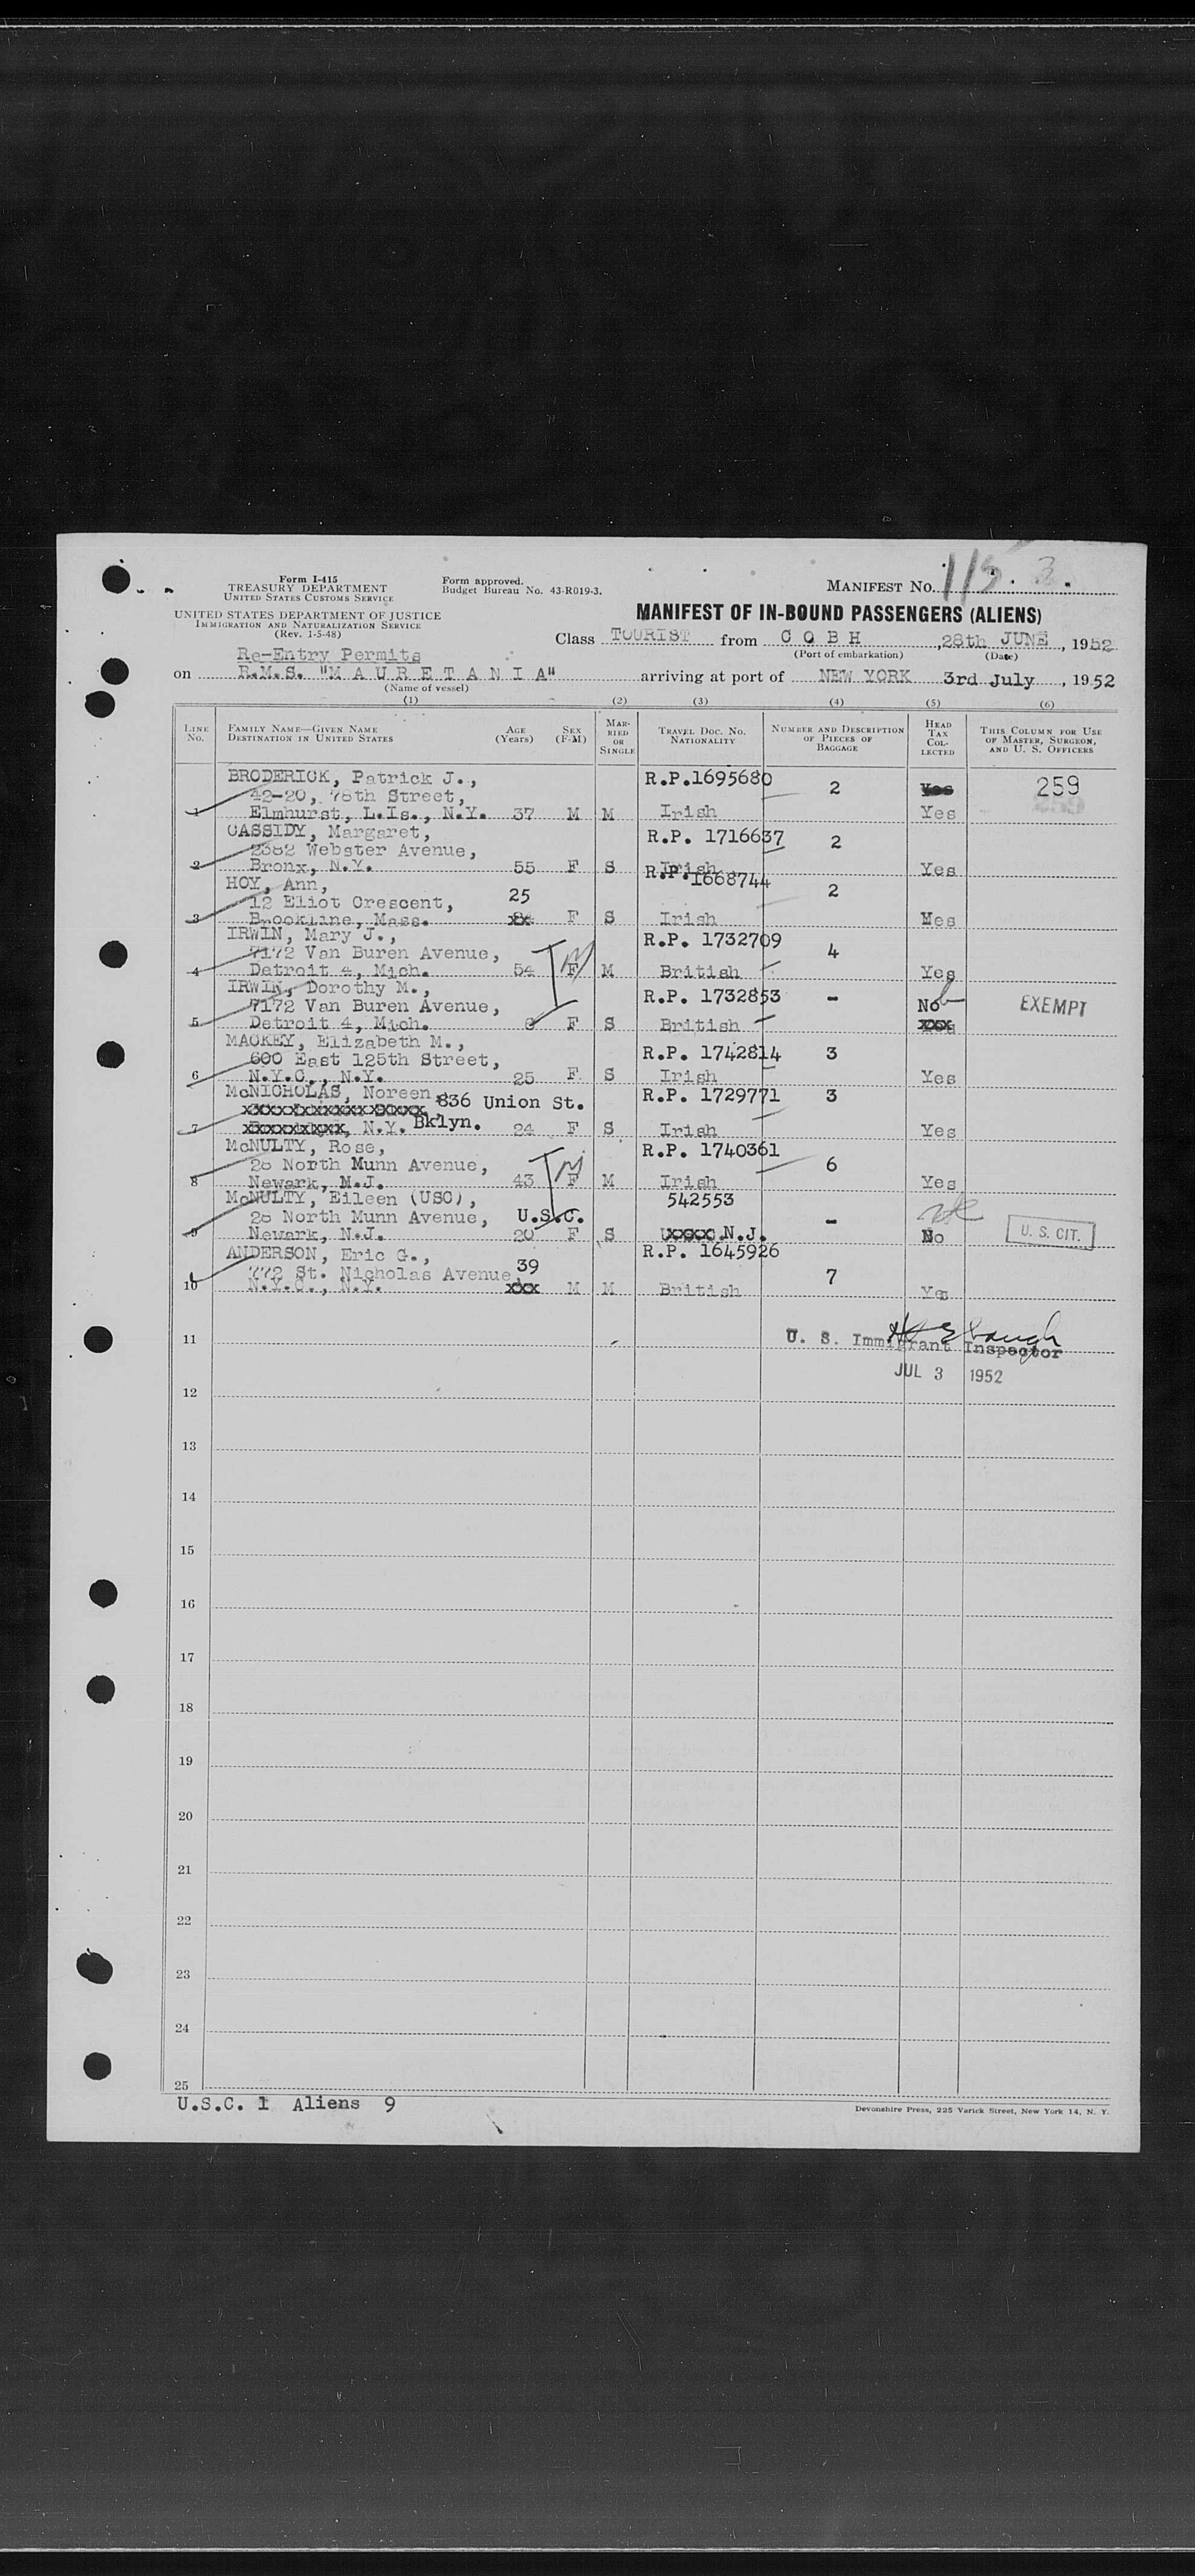 Form I-415
TREASURY DEPARTMENT
UNITED STATES CUSTOMS SERVICE
Form approved.
Budget Bureau No. 43-R019-3.
MANIFEST No. 115
UNITED STATES DEPARTMENT OF JUSTICE
IMMIGRATION AND NATURALIZATION SERVICE
(Rev. 1-5-48)
MANIFEST OF IN-BOUND PASSENGERS (ALIENS)
Class TOURIST from COBH, 28th JUNE, 1952
(Port of embarkation) (Date)
Re-Entry Permits
on R.M.S. "MAURETANIA" arriving at port of NEW YORK 3rd July, 1952
(Name of vessel)
(1) (2) (3) (4) (5) (6)
LINE No. FAMILY NAME—GIVEN NAME DESTINATION IN UNITED STATES AGE (Years) SEX (F-M) MARRIED OR SINGLE TRAVEL DOC. NO. NATIONALITY NUMBER AND DESCRIPTION OF PIECES OF BAGGAGE HEAD TAX COLLECTED THIS COLUMN FOR USE OF MASTER, SURGEON, AND U. S. OFFICERS
BRODERICK, Patrick J., R.P.1695680
42-20, 76th Street, 2 Yes 259
1 Elmhurst, L.Is., N.Y. 37 M M Irish Yes
CASSIDY, Margaret, R.P. 1716637
2382 Webster Avenue, 2
2 Bronx, N.Y. 55 F S Irish Yes
HOY, Ann, R.P. 1668744
12 Eliot Crescent, 25 2
3 Brookline, Mass. xx F S Irish Yes
IRWIN, Mary J., R.P. 1732709
7172 Van Buren Avenue, 4
4 Detroit 4, Mich. 54 F M British Yes
IRWIN, Dorothy M., R.P. 1732853
7172 Van Buren Avenue, - No EXEMPT
5 Detroit 4, Mich. F S British xxx
MACKEY, Elizabeth M., R.P. 1742814
600 East 125th Street, 3
6 N.Y.C., N.Y. 25 F S Irish Yes
McNICHOLAS, Noreen R.P. 1729771
xxxxxxxxxxxxxxxxxx 836 Union St. 3
7 xxxxxxxxxx, N.Y. Bklyn. 24 F S Irish Yes
McNULTY, Rose, R.P. 1740361
28 North Munn Avenue, 6
8 Newark, N.J. 43 F M Irish Yes
McNULTY, Eileen (USC), 542553
28 North Munn Avenue, U.S.C. -
9 Newark, N.J. 20 F S N.J. No U. S. CIT.
ANDERSON, Eric G., R.P. 1645926
772 St. Nicholas Avenue, 39 7
10 N.Y.C., N.Y. xxx M M British Yes
11
U. S. Immigrant Inspector
JUL 3 1952
12
13
14
15
16
17
18
19
20
21
22
23
24
25
U.S.C. 1 Aliens 9
Devonshire Press, 225 Varick Street, New York 14, N. Y.